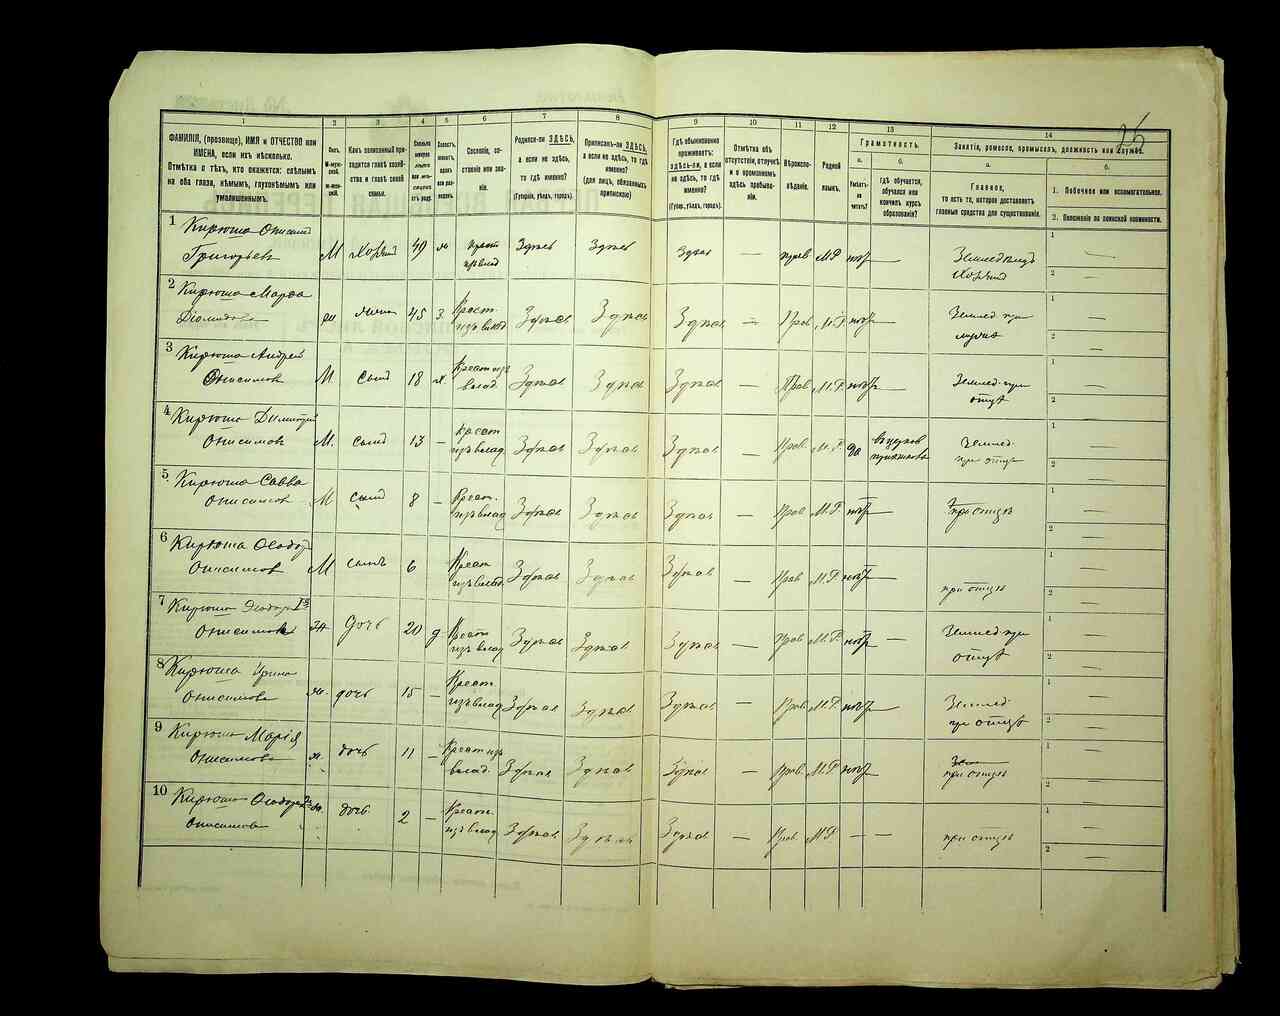 25
1
ФАМИЛІЯ, (прозвище), ИМЯ и ОТЧЕСТВО или
ИМЕНА, если ихъ нѣсколько.
Отмѣтка о тѣхъ, кто окажется: слѣпымъ
на оба глаза, нѣмымъ, глухонѣмымъ или
умалишеннымъ.
2
Полъ.
М-муж-
ской.
Ж-жен-
скій.
3
Какъ записанный при-
ходится главѣ хозяй-
ства и главѣ своей
семьи.
4
Сколько
минуло
лѣтъ
или мѣ-
сяцевъ
отъ роду.
5
Холостъ,
женатъ,
вдовъ
или раз-
веденъ.
6
Сословіе, со-
стояніе или зва-
ніе.
7
Родился-ли ЗДѢСЬ,
а если не здѣсь,
то гдѣ именно?
(Губернія, уѣздъ, городъ).
8
Приписанъ-ли ЗДѢСЬ,
а если не здѣсь, то гдѣ
именно?
(для лицъ, обязанныхъ
припискою)
9
Гдѣ обыкновенно
проживаетъ:
здѣсь-ли, а если
не здѣсь, то гдѣ
именно?
(Губер., уѣздъ, городъ).
10
Отмѣтка объ
отсутствіи, отлучкѣ
и о временномъ
здѣсь пребыва-
ніи.
11
Вѣроиспо-
вѣданіе.
12
Родной
языкъ.
13
Грамотность.
а.
Умѣетъ-
ли
читать?
б.
Гдѣ обучается,
обучался или
кончилъ курсъ
образованія?
14
Занятіе, ремесло, промыселъ, должность или служба.
а.
Главное,
то есть то, которое доставляетъ
главныя средства для существованія.
б.
1. Побочное или вспомогательное.
2. Положеніе по воинской повинности.
1 Кирюша Онисим
Григорьев М Хозяин 49 ж Крест изъ влад Здѣсь Здѣсь Здѣсь — Прав М.Р. нѣт — Землед 1 — 2 —
2 Кирюша Марфа
жена 45 З. Крест. изъ влад Здѣсь Здѣсь Здѣсь — Прав М.Р. нѣт — Землед при мужѣ 1 — 2 —
3 Кирюша Андрей
Онисимов М сын 18 х. Крест изъ влад. Здѣсь Здѣсь Здѣсь — Прав М.Р. нѣт — Землед при отцѣ 1 — 2 —
4 Кирюша Димитрий
Онисимов М. сын 13 — Крест изъ влад. Здѣсь Здѣсь Здѣсь — Прав. М.Р. да Землед. при отцѣ 1 — 2 —
5. Кирюша Савва
Онисимов М сын 8 — Крест. изъ влад Здѣсь Здѣсь Здѣсь — Прав М.Р. нѣт — при отцѣ 1 — 2 —
6 Кирюша Ѳеодор
Онисимов М сынъ 6 Крест изъ влад Здѣсь Здѣсь Здѣсь — Прав М.Р. нѣт — при отцѣ 1 — 2 —
7 Кирюша
Онисимова ж. дочь 20 д Крест изъ влад Здѣсь Здѣсь Здѣсь — Прав М.Р. нѣт — Землед при отцѣ 1 — 2 —
8 Кирюша Ирина
Онисимова ж. дочь 15 — Крест. изъ влад Здѣсь Здѣсь Здѣсь — Прав М.Р. нѣт — Землед. при отцѣ 1 — 2 —
9 Кирюша Марія
Онисимова ж. дочь 11 — Крест изъ влад. Здѣсь Здѣсь Здѣсь — Прав. М.Р. нѣт — при отцѣ 1 — 2 —
10 Кирюша
Онисимова ж. дочь 2 — Крест. изъ влад Здѣсь Здѣсь Здѣсь — Прав. М.Р. — — при отцѣ 1 — 2 —